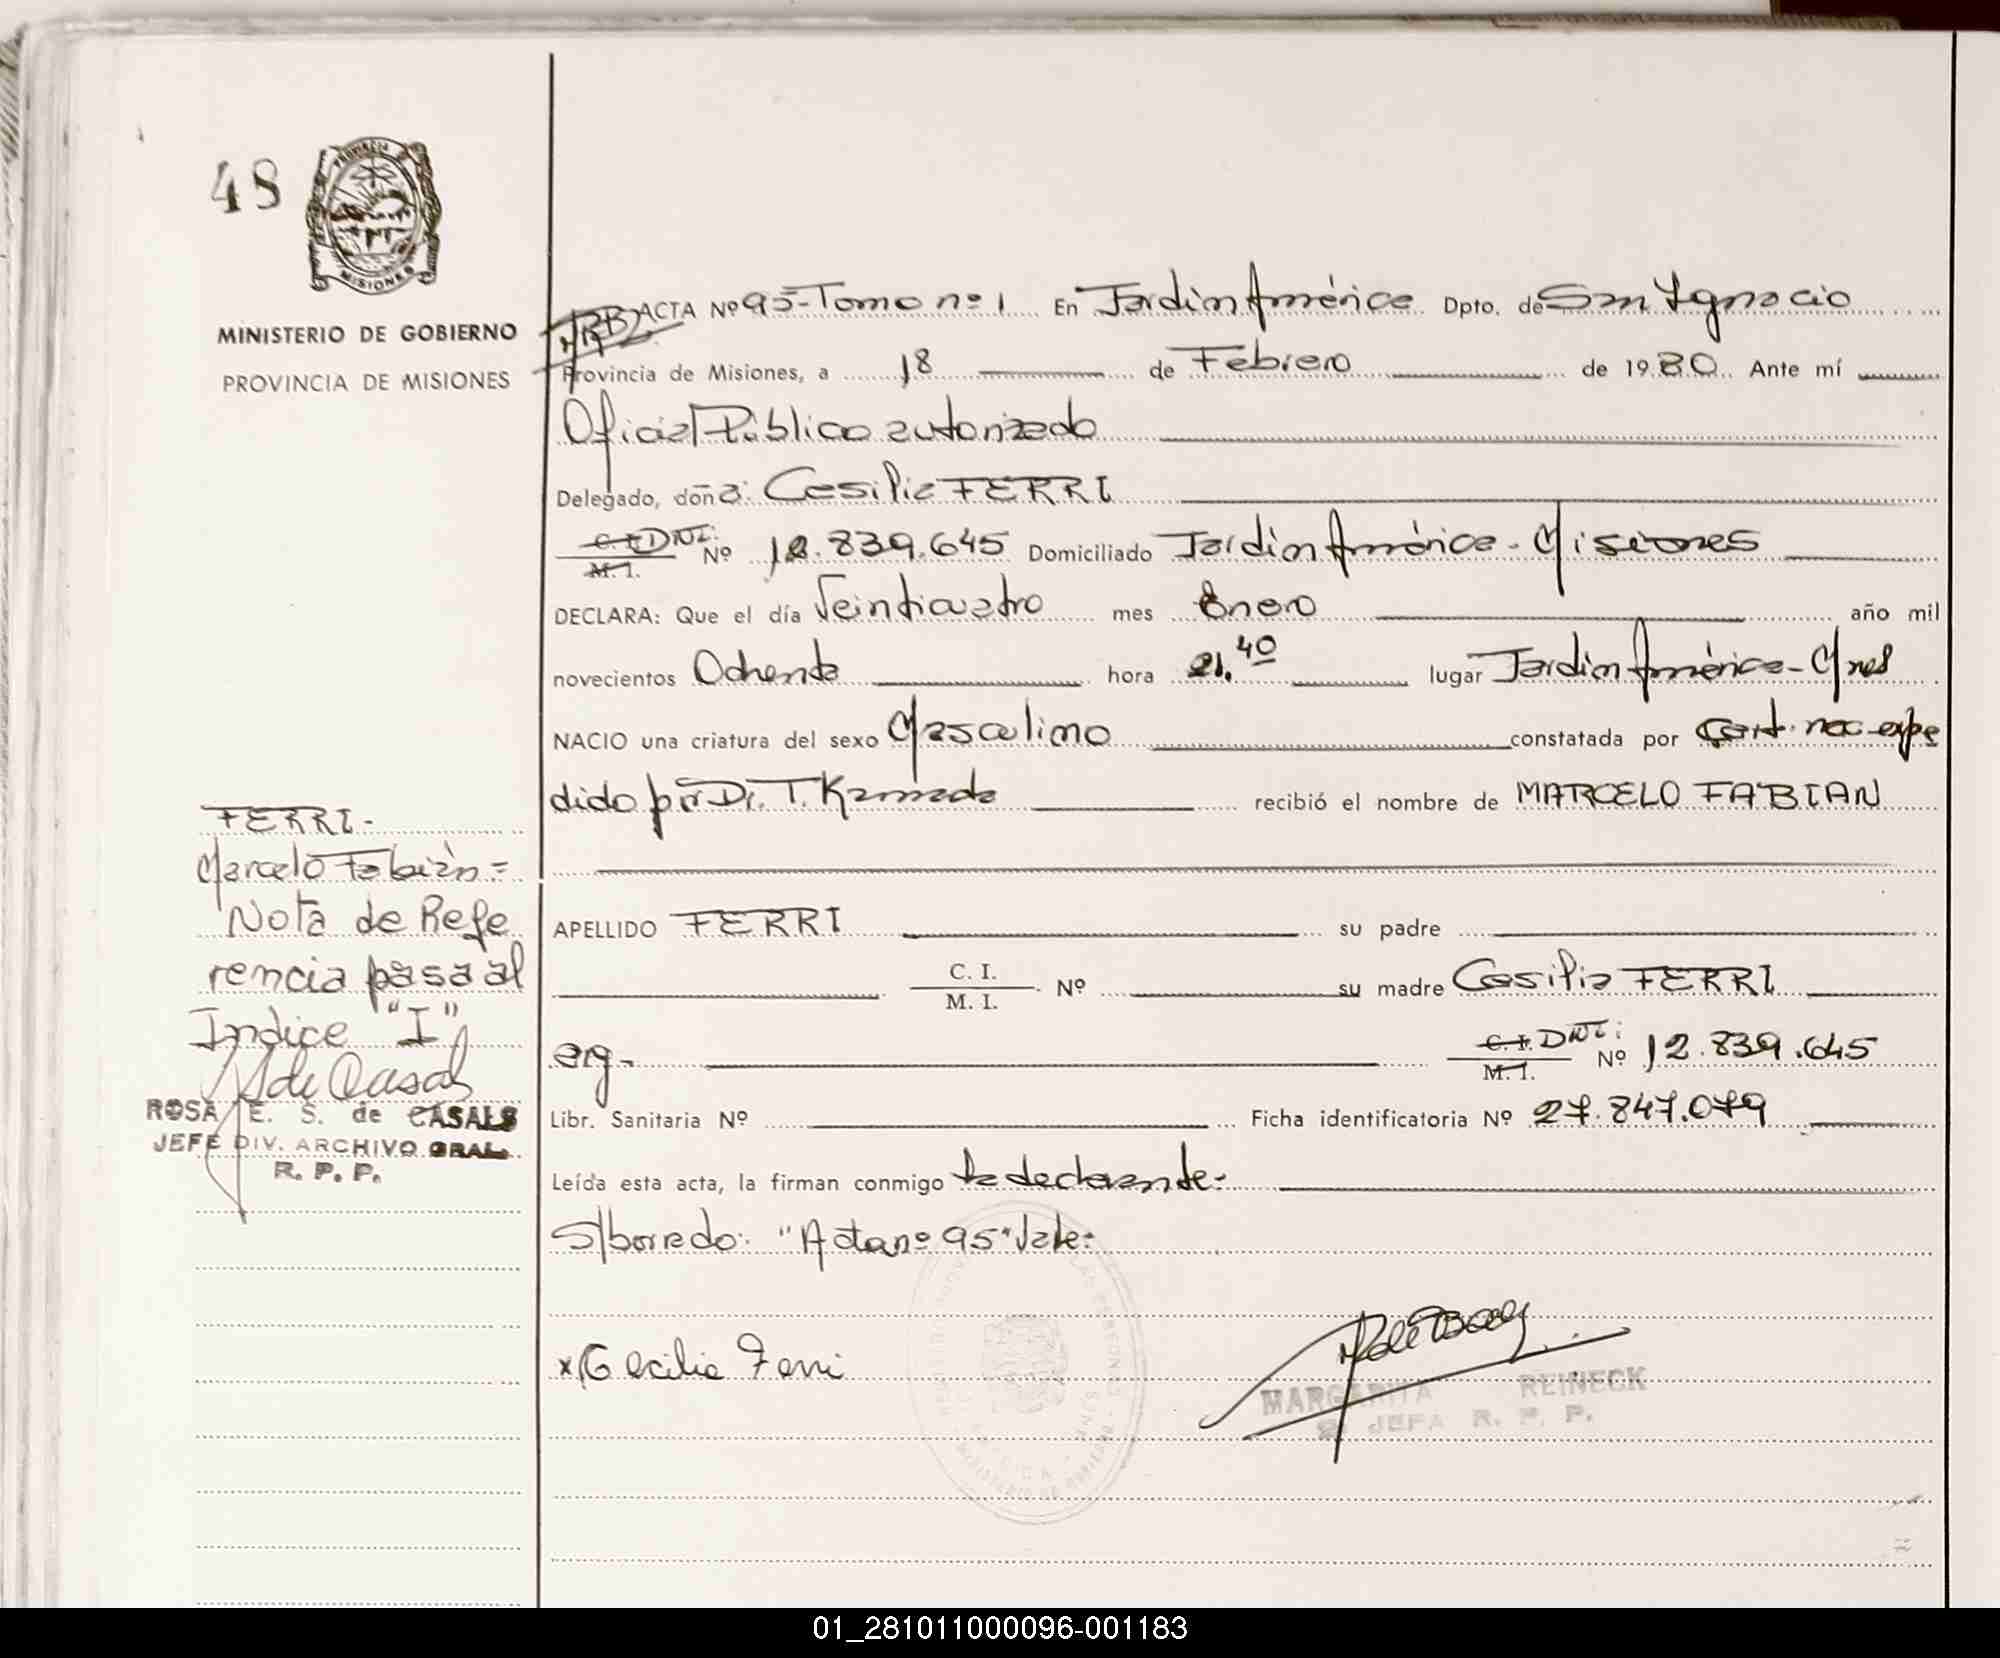 48
PROVINCIA
MISIONES
MINISTERIO DE GOBIERNO
PROVINCIA DE MISIONES
ACTA Nº 95-Tomo nº 1 En Jardín América Dpto. de San Ignacio
Provincia de Misiones, a 18 de Febrero de 1980. Ante mí
Oficial Público autorizado
Delegado, doña: Cesilia FERRI
C. I. DNI: Nº 12.839.645 Domiciliado Jardín América - Misiones
M. I.
DECLARA: Que el día Veinticuatro mes Enero año mil
novecientos Ochenta hora 21.40 lugar Jardín América - Mnes
NACIO una criatura del sexo Masculino constatada por Cert. nac. expe
dido por Dr. T. Kamada recibió el nombre de MARCELO FABIAN
APELLIDO FERRI su padre
C. I. Nº su madre Cesilia FERRI
M. I.
arg - C. I. DNI: Nº 12.839.645
M. I.
Libr. Sanitaria Nº Ficha identificatoria Nº 27.847.079
Leída esta acta, la firman conmigo la declarante:
S/borrado: "Acta nº 95" Vale:
x Cecilia Ferri
MARGARITA REINECK
JEFA R. P. P.
FERRI -
Marcelo Fabián =
Nota de Refe
rencia pasa al
Indice "I"
ROSA E. S. de CASALS
JEFE DIV. ARCHIVO GRAL.
R. P. P.
01_281011000096-001183